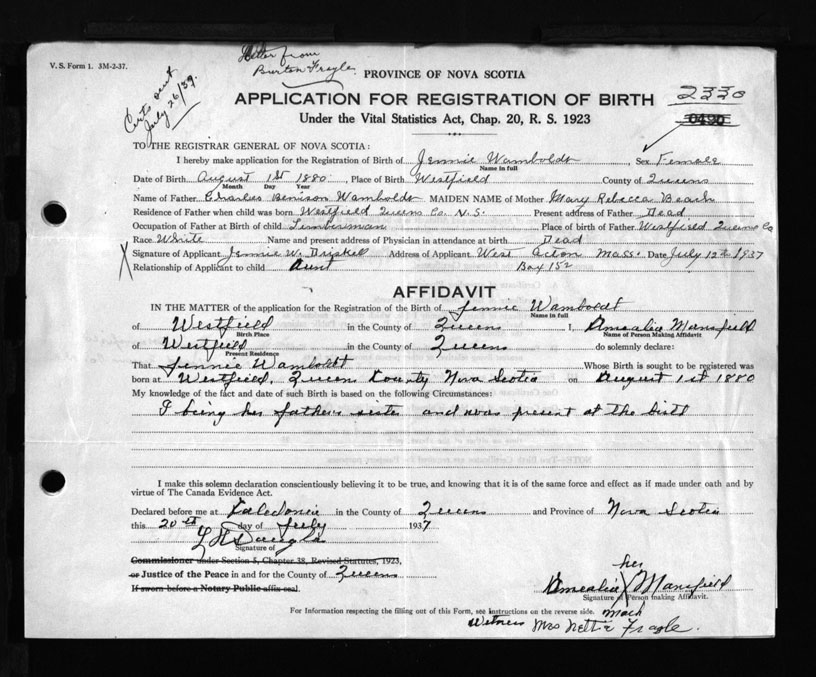 V. S. Form 1. 3M-2-37.
Letter from
Burton Frayle
Certs sent
July 26/39.
PROVINCE OF NOVA SCOTIA
APPLICATION FOR REGISTRATION OF BIRTH
2330
0490
Under the Vital Statistics Act, Chap. 20, R. S. 1923
TO THE REGISTRAR GENERAL OF NOVA SCOTIA:
I hereby make application for the Registration of Birth of Jennie Wamboldt Sex Female
Name in full
Date of Birth August 1st 1880, Place of Birth Westfield County of Queens
Month Day Year
Name of Father Charles Benison Wamboldt MAIDEN NAME of Mother Mary Rebecca Beach
Residence of Father when child was born Westfield Queens Co. N.S. Present address of Father Dead
Occupation of Father at Birth of child Lumberman Place of birth of Father Westfield Queens Co
Race White Name and present address of Physician in attendance at birth Dead
X Signature of Applicant Jennie W. Driskel Address of Applicant West Acton Mass. Date July 12th 1937
Relationship of Applicant to child Aunt Box 152
AFFIDAVIT
IN THE MATTER of the application for the Registration of Birth of Jennie Wamboldt
Name in full
of Westfield in the County of Queens I, Amealia Mansfield
Birth Place Name of Person Making Affidavit
of Westfield in the County of Queens do solemnly declare:
Present Residence
That Jennie Wamboldt Whose Birth is sought to be registered was
born at Westfield, Queens County Nova Scotia on August 1st 1880
My knowledge of the fact and date of such Birth is based on the following Circumstances:
I being her fathers sister and was present at the birth
I make this solemn declaration conscientiously believing it to be true, and knowing that it is of the same force and effect as if made under oath and by
virtue of The Canada Evidence Act.
Declared before me at Caledonia in the County of Queens and Province of Nova Scotia
this 20th day of July 1937
L H Douglas
Signature of
Commissioner under Section 5, Chapter 38, Revised Statutes, 1923,
or Justice of the Peace in and for the County of Queens
If sworn before a Notary Public affix seal.
her
Amealia X Mansfield
Signature of Person making Affidavit.
mark
For Information respecting the filling out of this Form, see instructions on the reverse side.
Witness Mrs Nettie Frayle.